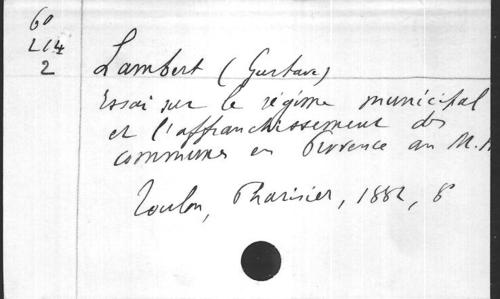 60
L14
2
Lambert (Gustave)
Essai sur le régime municipal
et l'affranchissement des
communes en Provence au M. A
Toulon, Pharisier, 1882, 8°